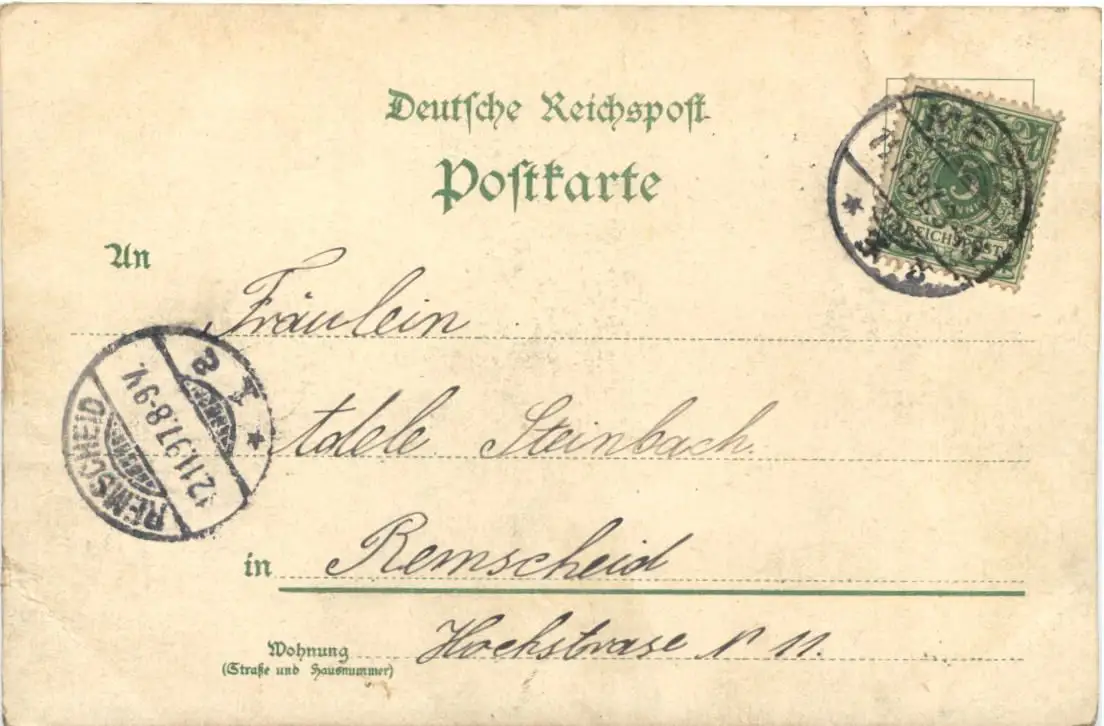 Deutsche Reichspost
Postkarte
5
REICHSPOST
An
Fräulein
Adele Steinbach.
in Remscheid
Wohnung
(Straße und Hausnummer)
Hochstrase N 11.
REMSCHEID
12.11.97.8-9V.
1 2